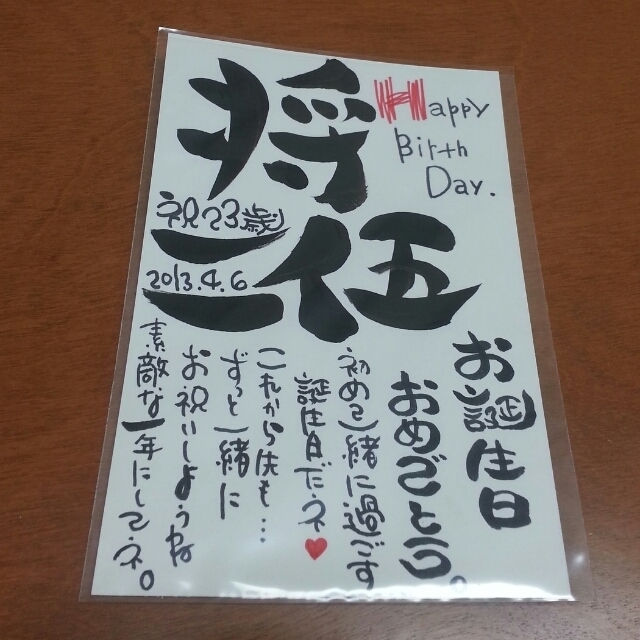 将伍
Happy
Birth
Day.
祝23歳
二
2013.4.6
お誕生日
おめでとう。
初めて一緒に過ごす
誕生日だネ♥
これから先も…
ずっと一緒に
お祝いしようね
素敵な一年にしてネ。